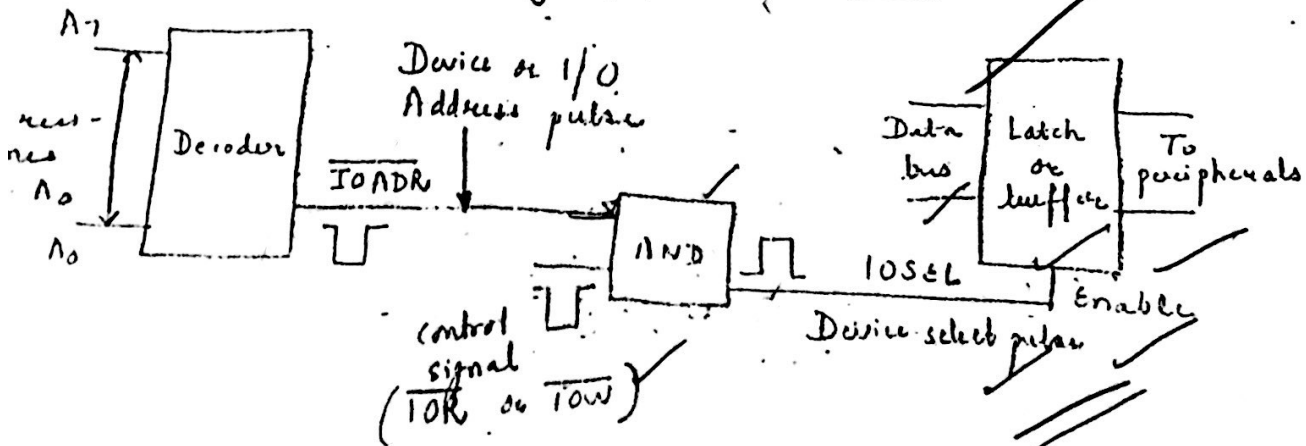 A7
Decoder
A0
A0
IOADR
Device or I/O
Address pulse
AND
control
signal
(IOR or IOW)
IOSEL
Device select pulse
Data
bus
Latch
or
buffer
To
peripherals
Enable